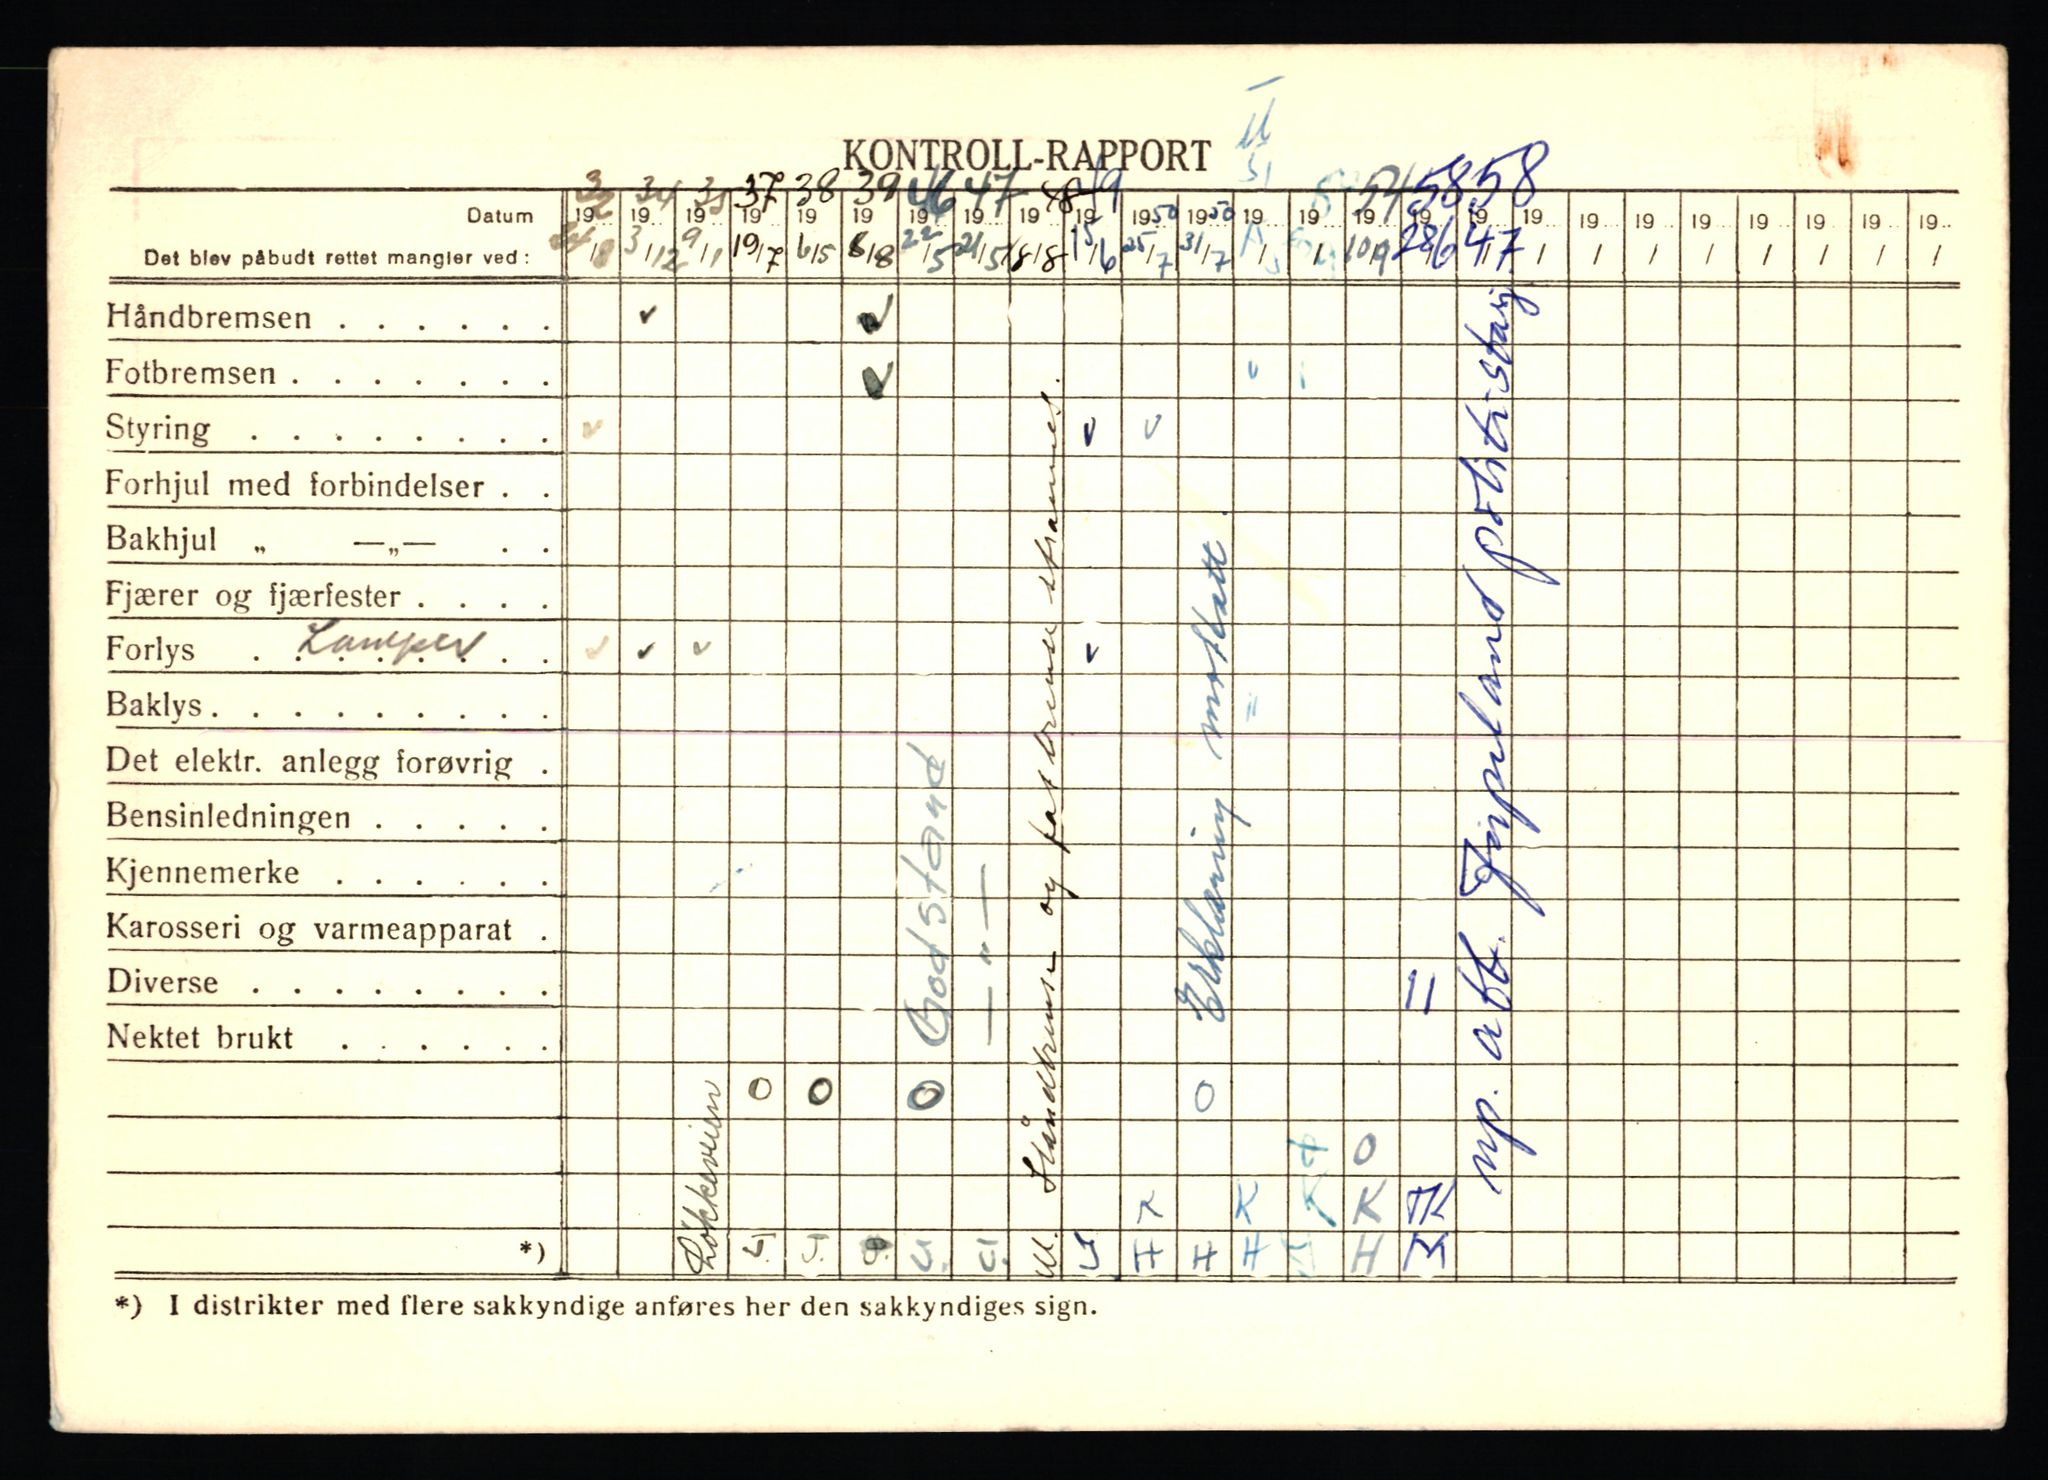 KONTROLL-RAPPORT
51
34 35 37 38 39 46 47 48 49 54 58 58
Datum 19 19 19 19 19 19 19 19 19 19 1950 1950 19 19 19 19 19 19 19 19 19 19 19 19 19
Det blev påbudt rettet mangler ved: 3/12 9/11 19/7 6/5 8/8 22/5 21/5 18/8 15/6 25/7 31/7 / / 10/9 28/6 4/7 / / / / / / / /
Håndbremsen . . . . . . ✓ ✓
Fotbremsen . . . . . . . ✓ ✓
Styring . . . . . . . . ✓ ✓ ✓
Forhjul med forbindelser . .
Bakhjul „ —„— . .
Fjærer og fjærfester . . . .
Forlys Lamper ✓ ✓ ✓ ✓
Baklys . . . . . . . . .
Det elektr. anlegg forøvrig .
Bensinledningen . . . . .
Kjennemerke . . . . . .
Karosseri og varmeapparat .
Diverse . . . . . . . . 11
Nektet brukt . . . . . .
O O O O
O
K K K K TK
*) J. J. J. J. M. J H H H H
Løkkevien
God stand
— „ —
Håndbremse og fotbremse strammes.
Erklæring mottatt.
mp. att. Finpland politi-stasj
*) I distrikter med flere sakkyndige anføres her den sakkyndiges sign.